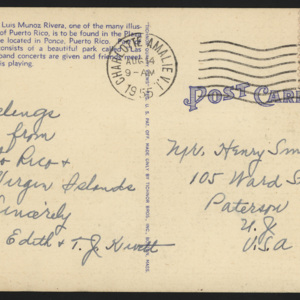 Luis Munoz Rivera, one of the many illus-
of Puerto Rico, is to be found in the Plaza
e located in Ponce, Puerto Rico.
onsists of a beautiful park called Las
band concerts are given and friends meet
is playing.
CHARLOTTE AMALIE V.I.
AUG
9-AM
1955
POST CARD
etings
from
o Rico &
Virgin Islands
Sincerely
Edith & T. J.
Mr. Henry Sm
105 Ward S
Paterson
N.J.
U.S.A